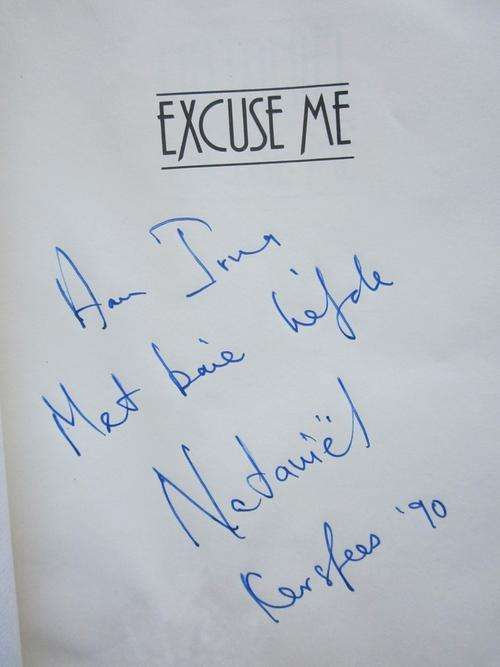 EXCUSE ME
Aan Irma
Met baie liefde
Nataniël
Kersfees '90